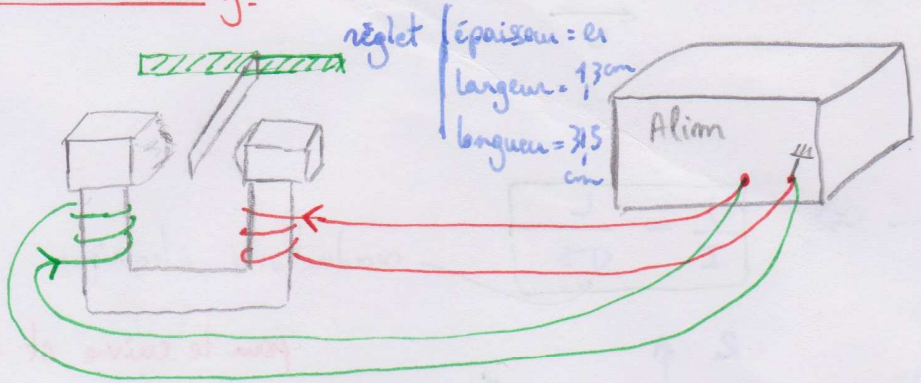 réglet épaisseur = e1
largeur = 1,3 cm
longueur = 31,5
cm
Alim